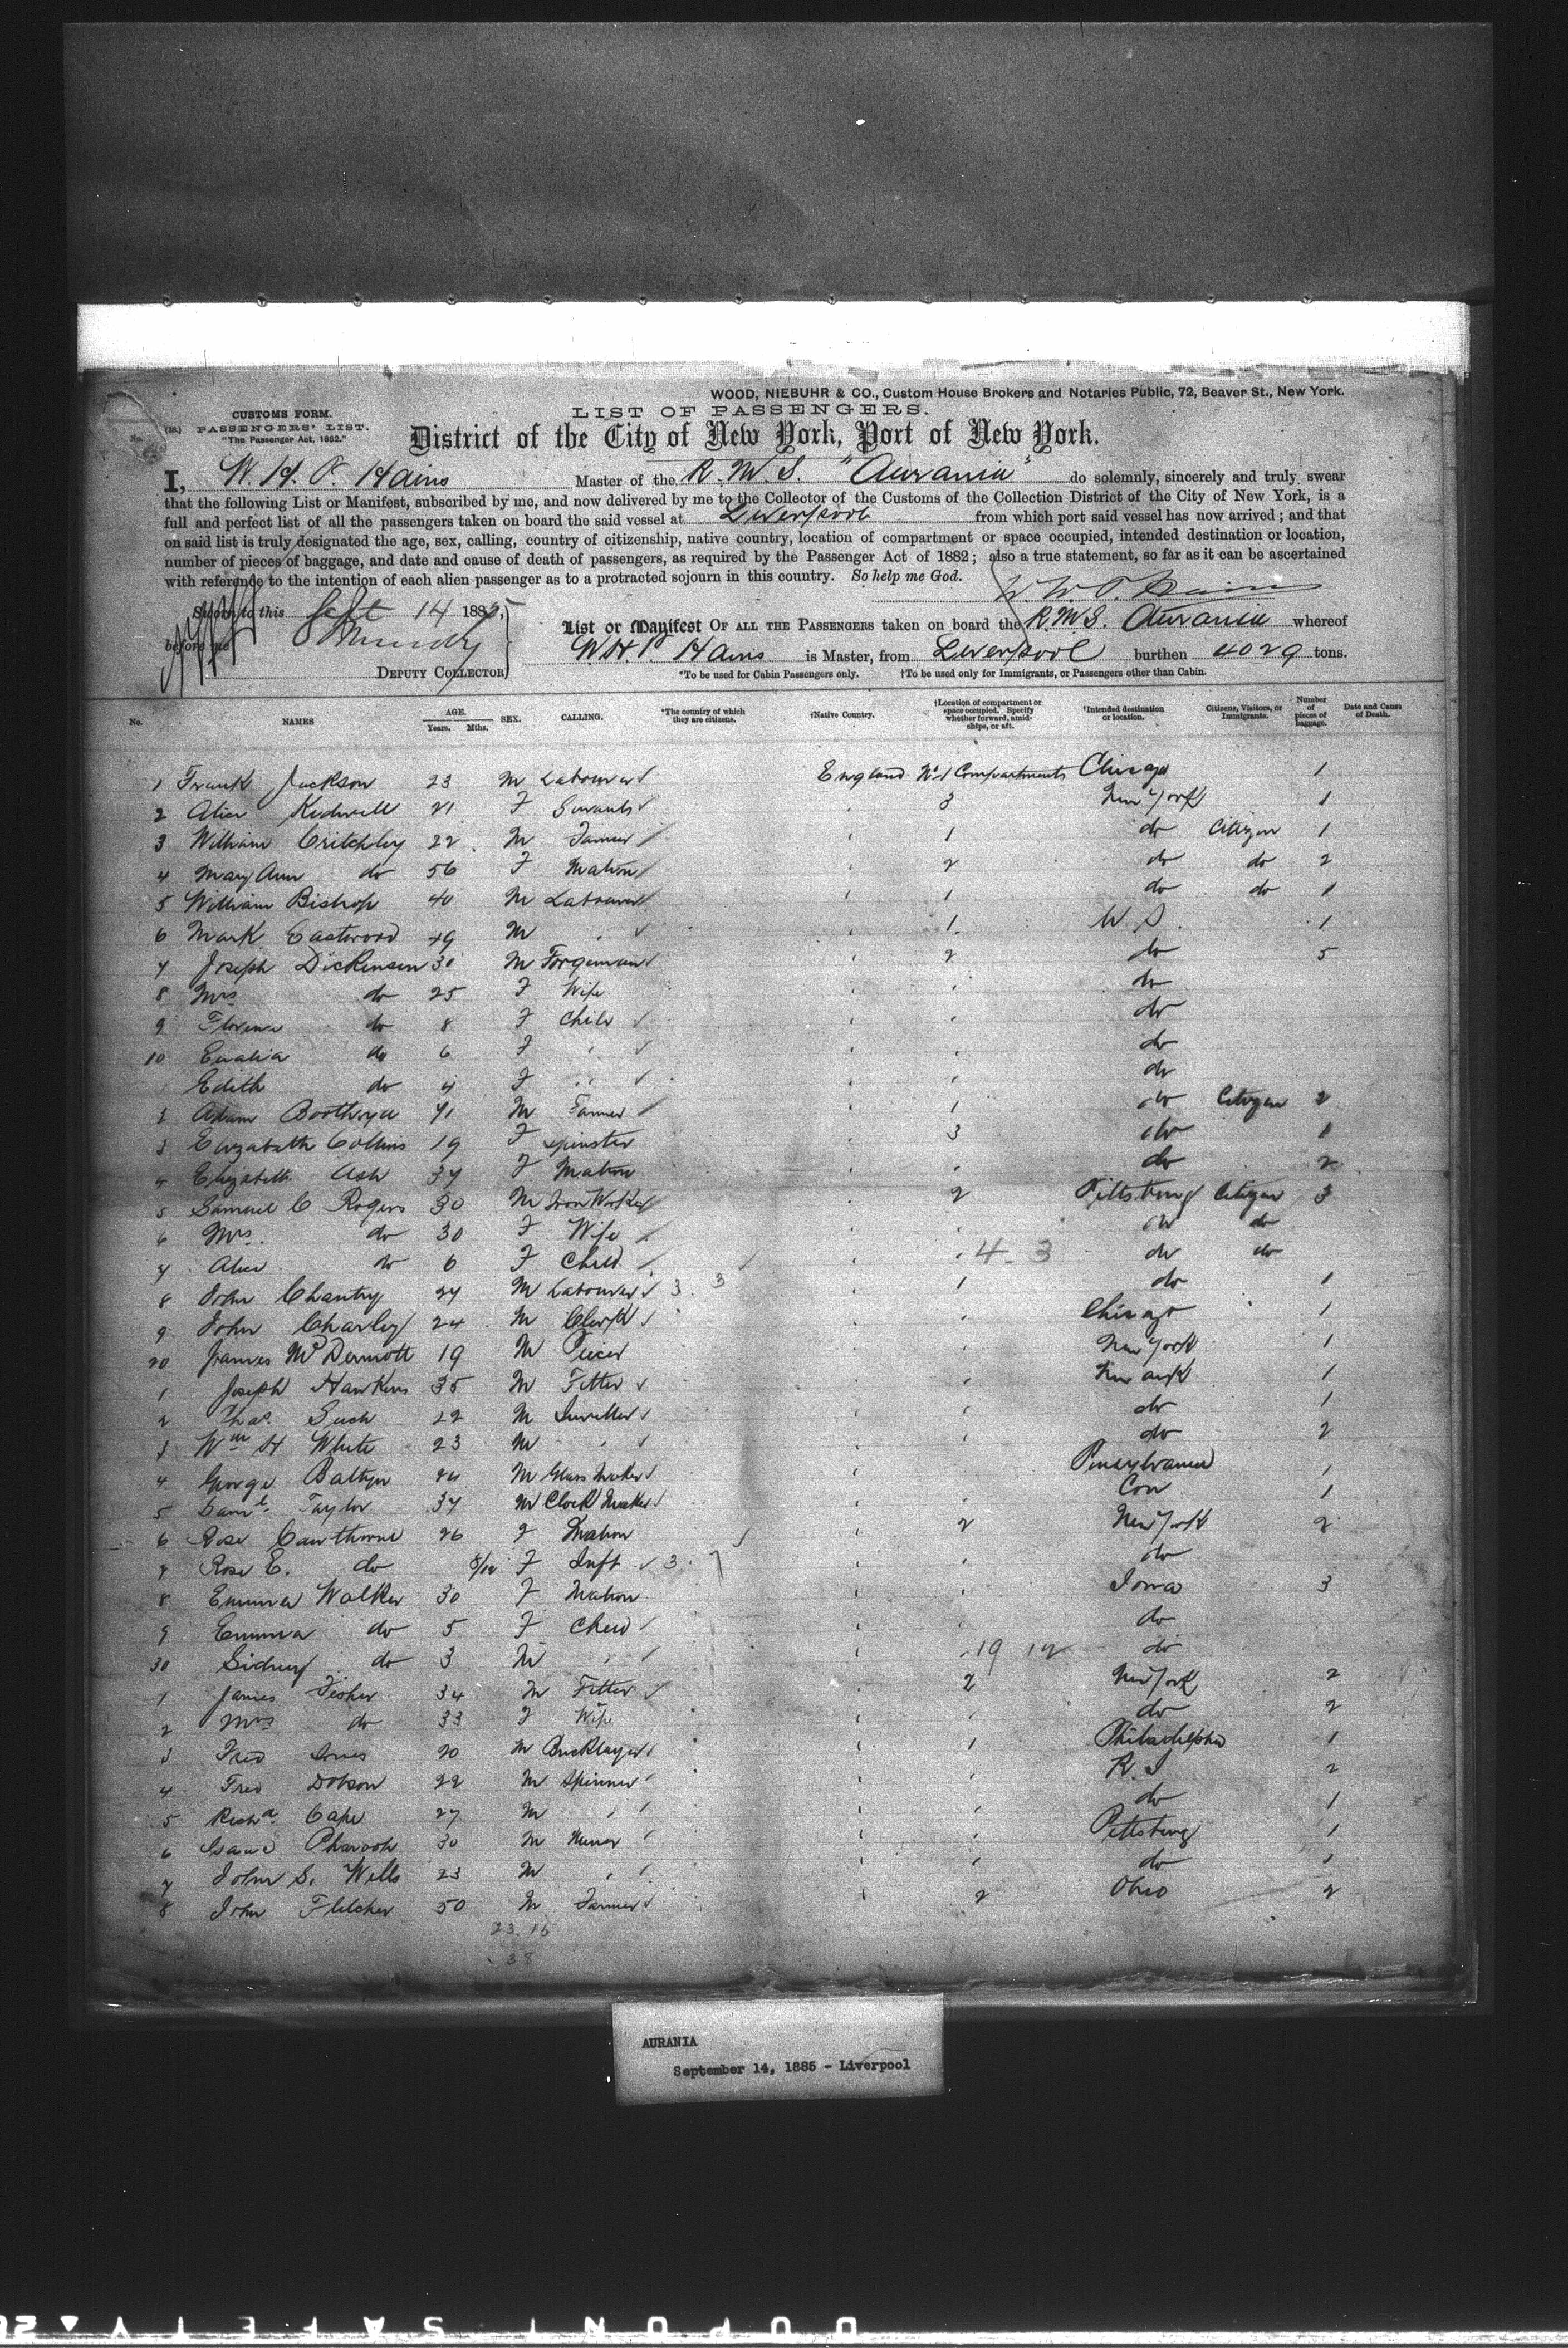 WOOD, NIEBUHR & CO., Custom House Brokers and Notaries Public, 72, Beaver St., New York.
CUSTOMS FORM.
LIST OF PASSENGERS.
PASSENGERS' LIST.
"The Passenger Act, 1882."
District of the City of New York, Port of New York.
I, W. H. P. Hains Master of the R.M.S. "Aurania" do solemnly, sincerely and truly swear
that the following List or Manifest, subscribed by me, and now delivered by me to the Collector of the Customs of the Collection District of the City of New York, is a
full and perfect list of all the passengers taken on board the said vessel at Liverpool from which port said vessel has now arrived; and that
on said list is truly designated the age, sex, calling, country of citizenship, native country, location of compartment or space occupied, intended destination or location,
number of pieces of baggage, and date and cause of death of passengers, as required by the Passenger Act of 1882; also a true statement, so far as it can be ascertained
with reference to the intention of each alien passenger as to a protracted sojourn in this country. So help me God.
Sworn to this Sept 14 1885,
before me
DEPUTY COLLECTOR
List or Manifest OF ALL THE PASSENGERS taken on board the R.M.S. Aurania whereof
W.H.P. Hains is Master, from Liverpool burthen 4029 tons.
*To be used for Cabin Passengers only. †To be used only for Immigrants, or Passengers other than Cabin.
No. NAMES AGE. Years. Mths. SEX. CALLING. *The country of which they are citizens. †Native Country. †Location of compartment or space occupied. Specify whether forward, amidships, or aft. †Intended destination or location. Citizens, Visitors, or Immigrants. Number of pieces of baggage. Date and Cause of Death.
1 Frank Jackson 23 M Labourer England No 1 Compartments Chicago 1
2 Alice Kidwell 21 F Servant 3 New York 1
3 William Critchley 22 M Farmer 1 do Citizen 1
4 Mary Ann do 56 F Matron 2 do do 2
5 William Bishop 40 M Labourer 1 do do 1
6 Mark Eastwood 49 M " 1 U.S. 1
7 Joseph Dickenson 30 M Forgeman 2 do 5
8 Mrs do 25 F Wife " do
9 Florence do 8 F Child " do
10 do 6 F " " do
1 Edith do 4 F " " do
2 Adam 41 M Farmer 1 do Citizen 2
3 Elizabeth Collins 19 F Spinster 3 do 1
4 Elizabeth Ash 37 F Matron " do 2
5 Samuel C Rogers 30 M Iron Worker 2 Pittsburg Citizen 3
6 Mrs. do 30 F Wife " do do
7 Alice do 6 F Child " 4 3 do do
8 John Chantry 24 M Labourer 3 3 1 do 1
9 John Charley 24 M Clerk " Chicago 1
20 James McDermott 19 M Piecer " New York 1
1 Joseph Hawkins 35 M Fitter " Newark 1
2 Thos. Such 22 M Jeweller " do 1
3 Wm H White 23 M " " do 2
4 George 24 M Glass Maker Pensylvania 1
5 Saml. Taylor 37 M Clock Maker " Con 1
6 Rose Cawthorne 26 F Matron 2 New York 2
7 Rose E. do F Inft 3 " do
8 Emma Walker 30 F Matron " Iowa 3
9 Emma do 5 F Child " do
30 Sidney do 3 M " " 19 12 do
1 James Fisher 34 M Fitter 2 New York 2
2 Mrs do 33 F Wife " do 2
3 Fred Jones 20 M Bricklayer 1 Philadelphia 1
4 Fred Dobson 22 M Spinner " R.I 2
5 Richd. Cape 27 M " " do 1
6 Isaac Pharoah 30 M Miner " Pittsburg 1
7 John S. Wells 23 M " " do 1
8 John Fletcher 50 M Farmer 2 Ohio 2
23 15
38
AURANIA
September 14, 1885 - Liverpool